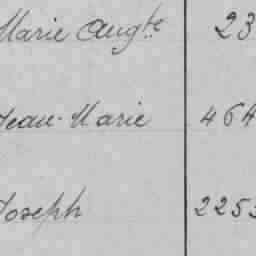 Marie Aug.te 23
Jean-Marie 464
Joseph 2253